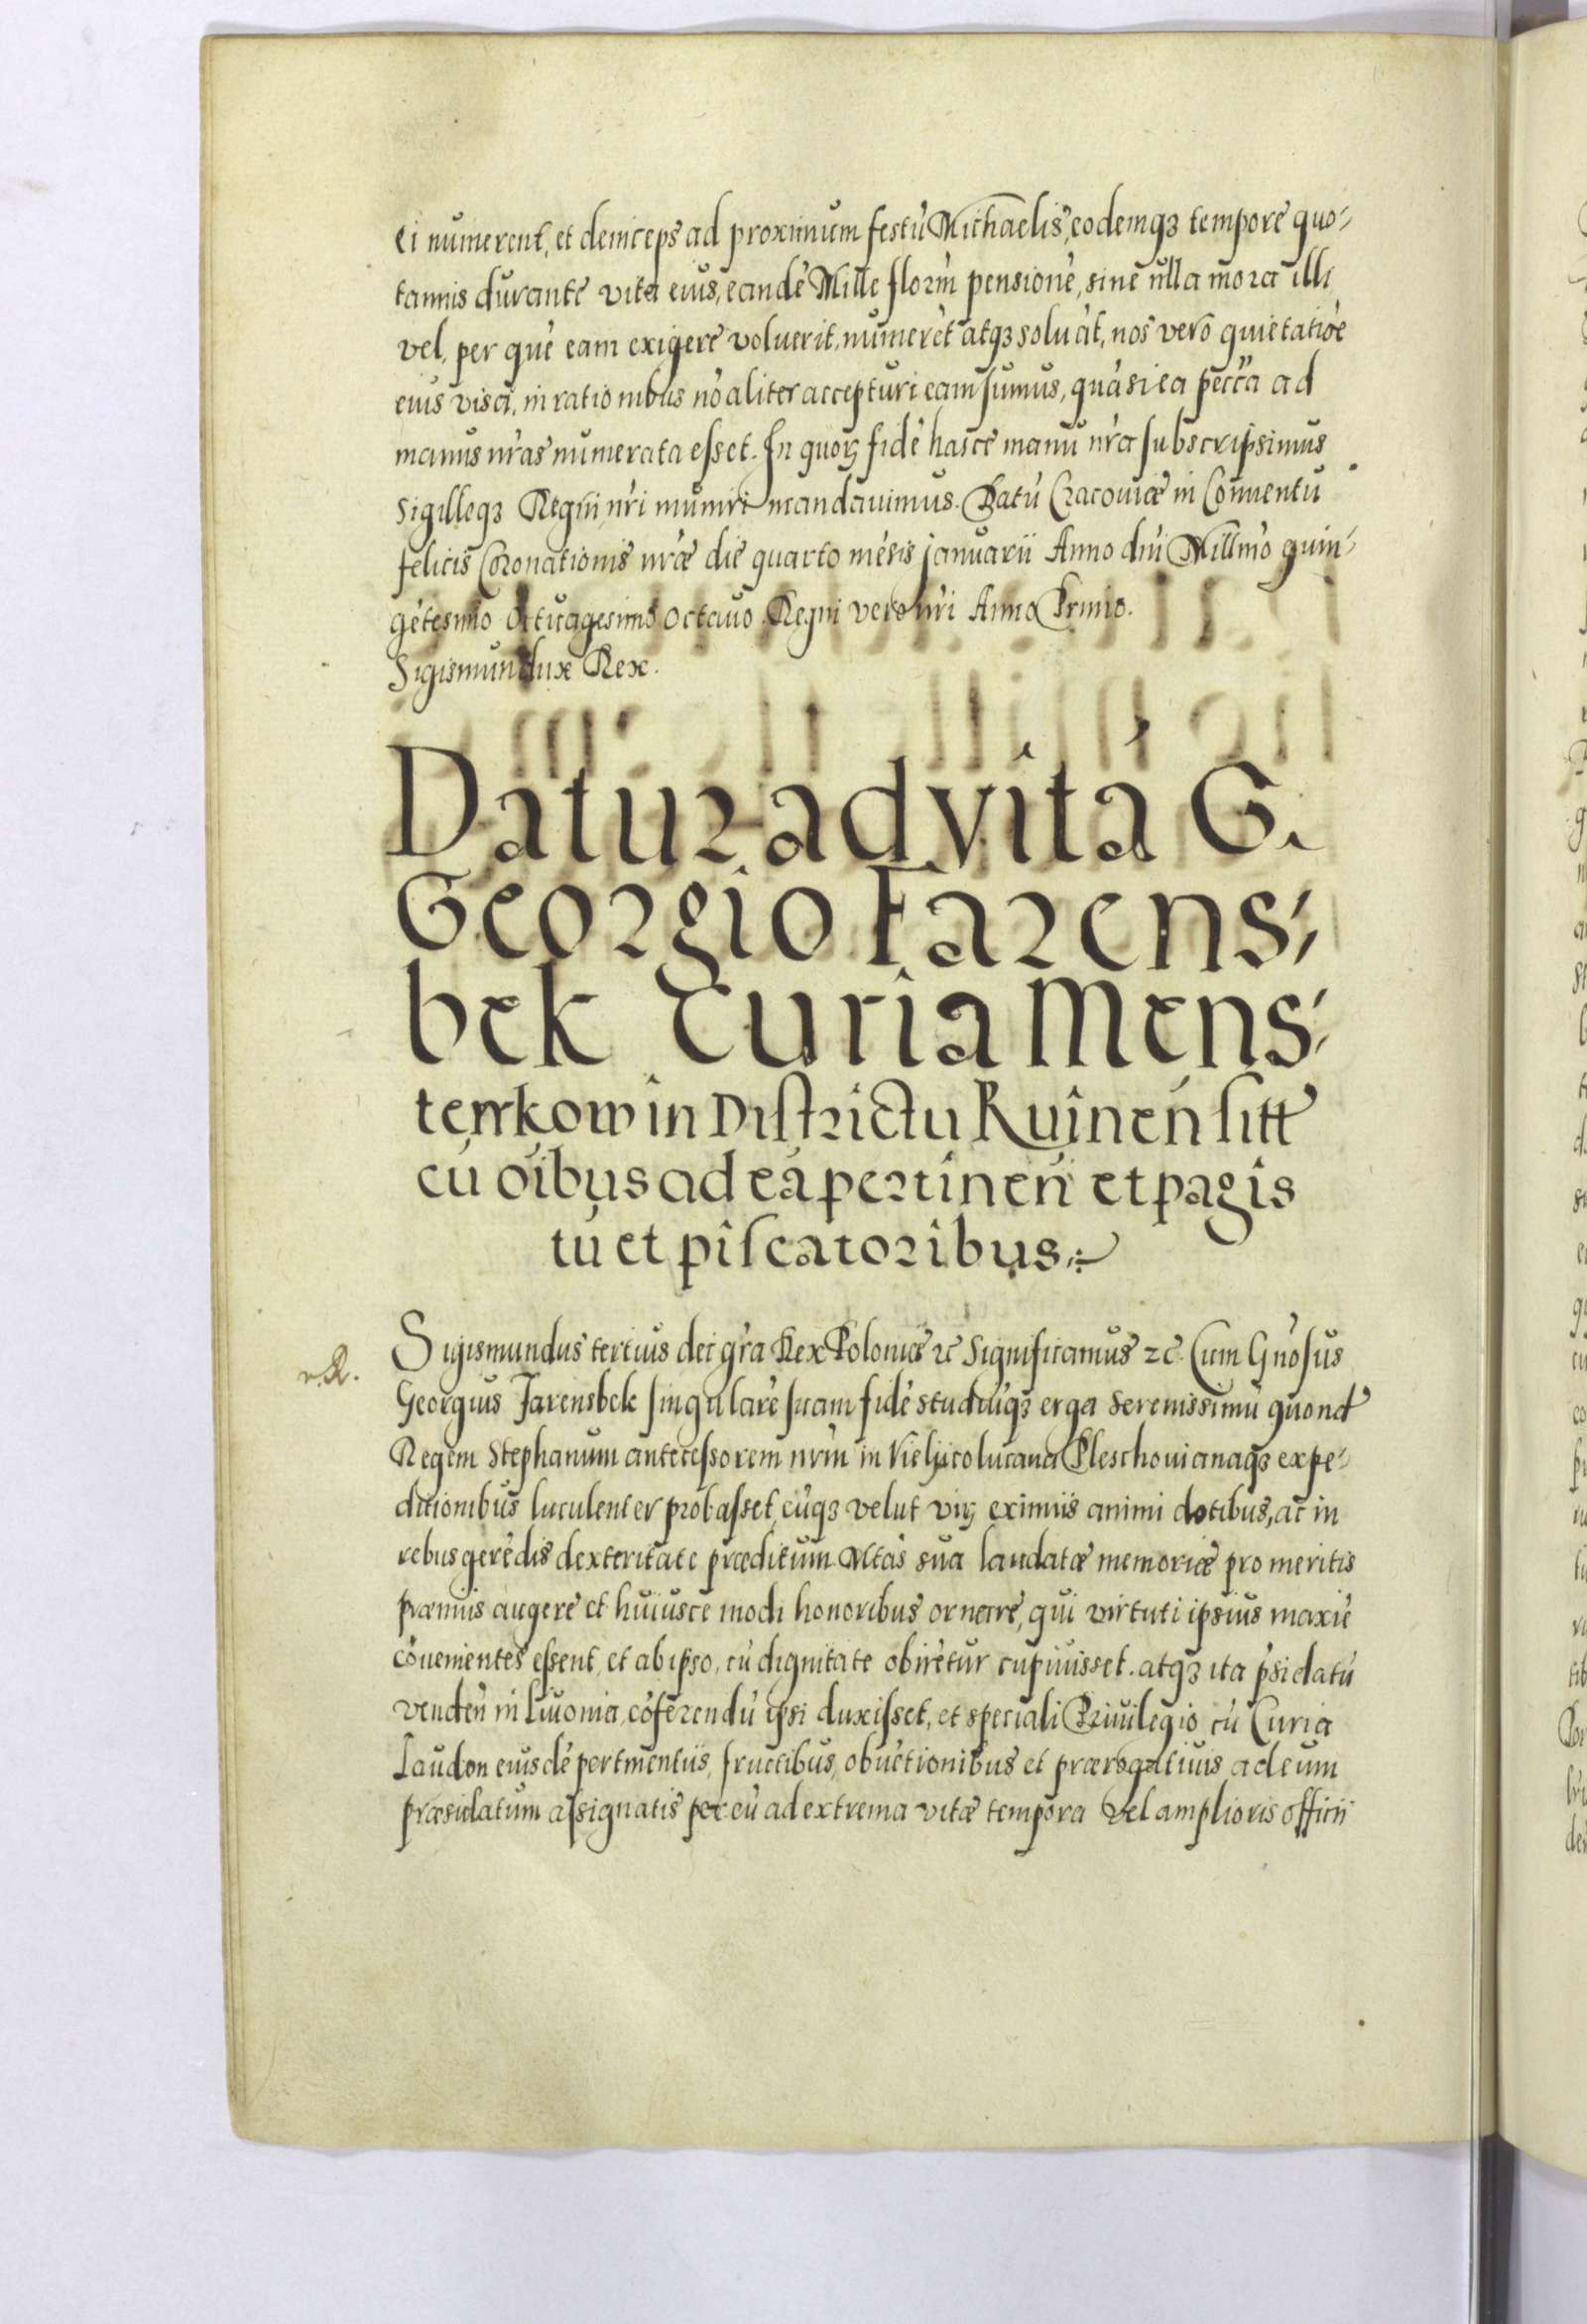 ei numerent, et deinceps ad proximum festũ Michaelis, eodemqꝫ tempore quo-
tannis durante vita eius, eandẽ Mille florñ pensionẽ, sine ulla mora illi
vel, per quẽ eam exigere voluerit, numerẽt atqꝫ soluãt, nos vero quietatiõe
eius visa, in rationibus nõ aliter accepturi eam sumus, quã si ea pecc̃a ad
manus nr̃as numerata esset. In quoꝝ fidẽ hasce manu nr̃a subscripsimus
Sigilloqꝫ Regni nr̃i muniri mandavimus. Datũ Cracoviæ in Conventu
felicis Coronationis nr̃æ die quarto mẽsis januarii Anno dñi Millm̃o quin-
gẽtesimo Octuagesimo Octavo Regni vero nr̃i Anno Primo.
Sigismundux Rex.
Datur ad vitã G.
Georgio Farens-
bek Curia Mens-
terrkow in Districtu Ruinen̄ sitt
cũ oĩbus ad eã pertinen̄ et pagis
tũ et piscatoribus
Sigismundus tertius dei gr̃a Rex Poloniæ ꝛc̃ Significamus ꝛc̃. Cum Gñosus
r. R.
Georgius Farensbek singularẽ suam fidẽ studiũqꝫ erga Serenissimũ quond
Regem Stephanum antecessorem nrm̃ in Vielijcolucana Pleschovianaqꝫ expe-
ditionibus luculenter probasset, cũqꝫ velut viꝝ eximiis animi dotibus, ac in
rebus gerẽdis dexteritate præditum Mtãs sua laudatæ memoriæ pro meritis
præmiis augere et huiusce modi honoribus ornare, qui virtuti ipsius maxiẽ
cõuenientes essent, et ab ipso, cũ dignitate obirẽtur cupiuisset. atqꝫ ita p̃sidatũ
venden̄ in Livonia, cõferendũ ipsi duxisset, et speciali Privilegio cũ Curia
Laudon eiusdẽ pertinentiis, fructibus, obuẽtionibus et prærogatiuis ad eum
præsidatum assignatis per eũ ad extrema vitæ tempora vel amplioris officii